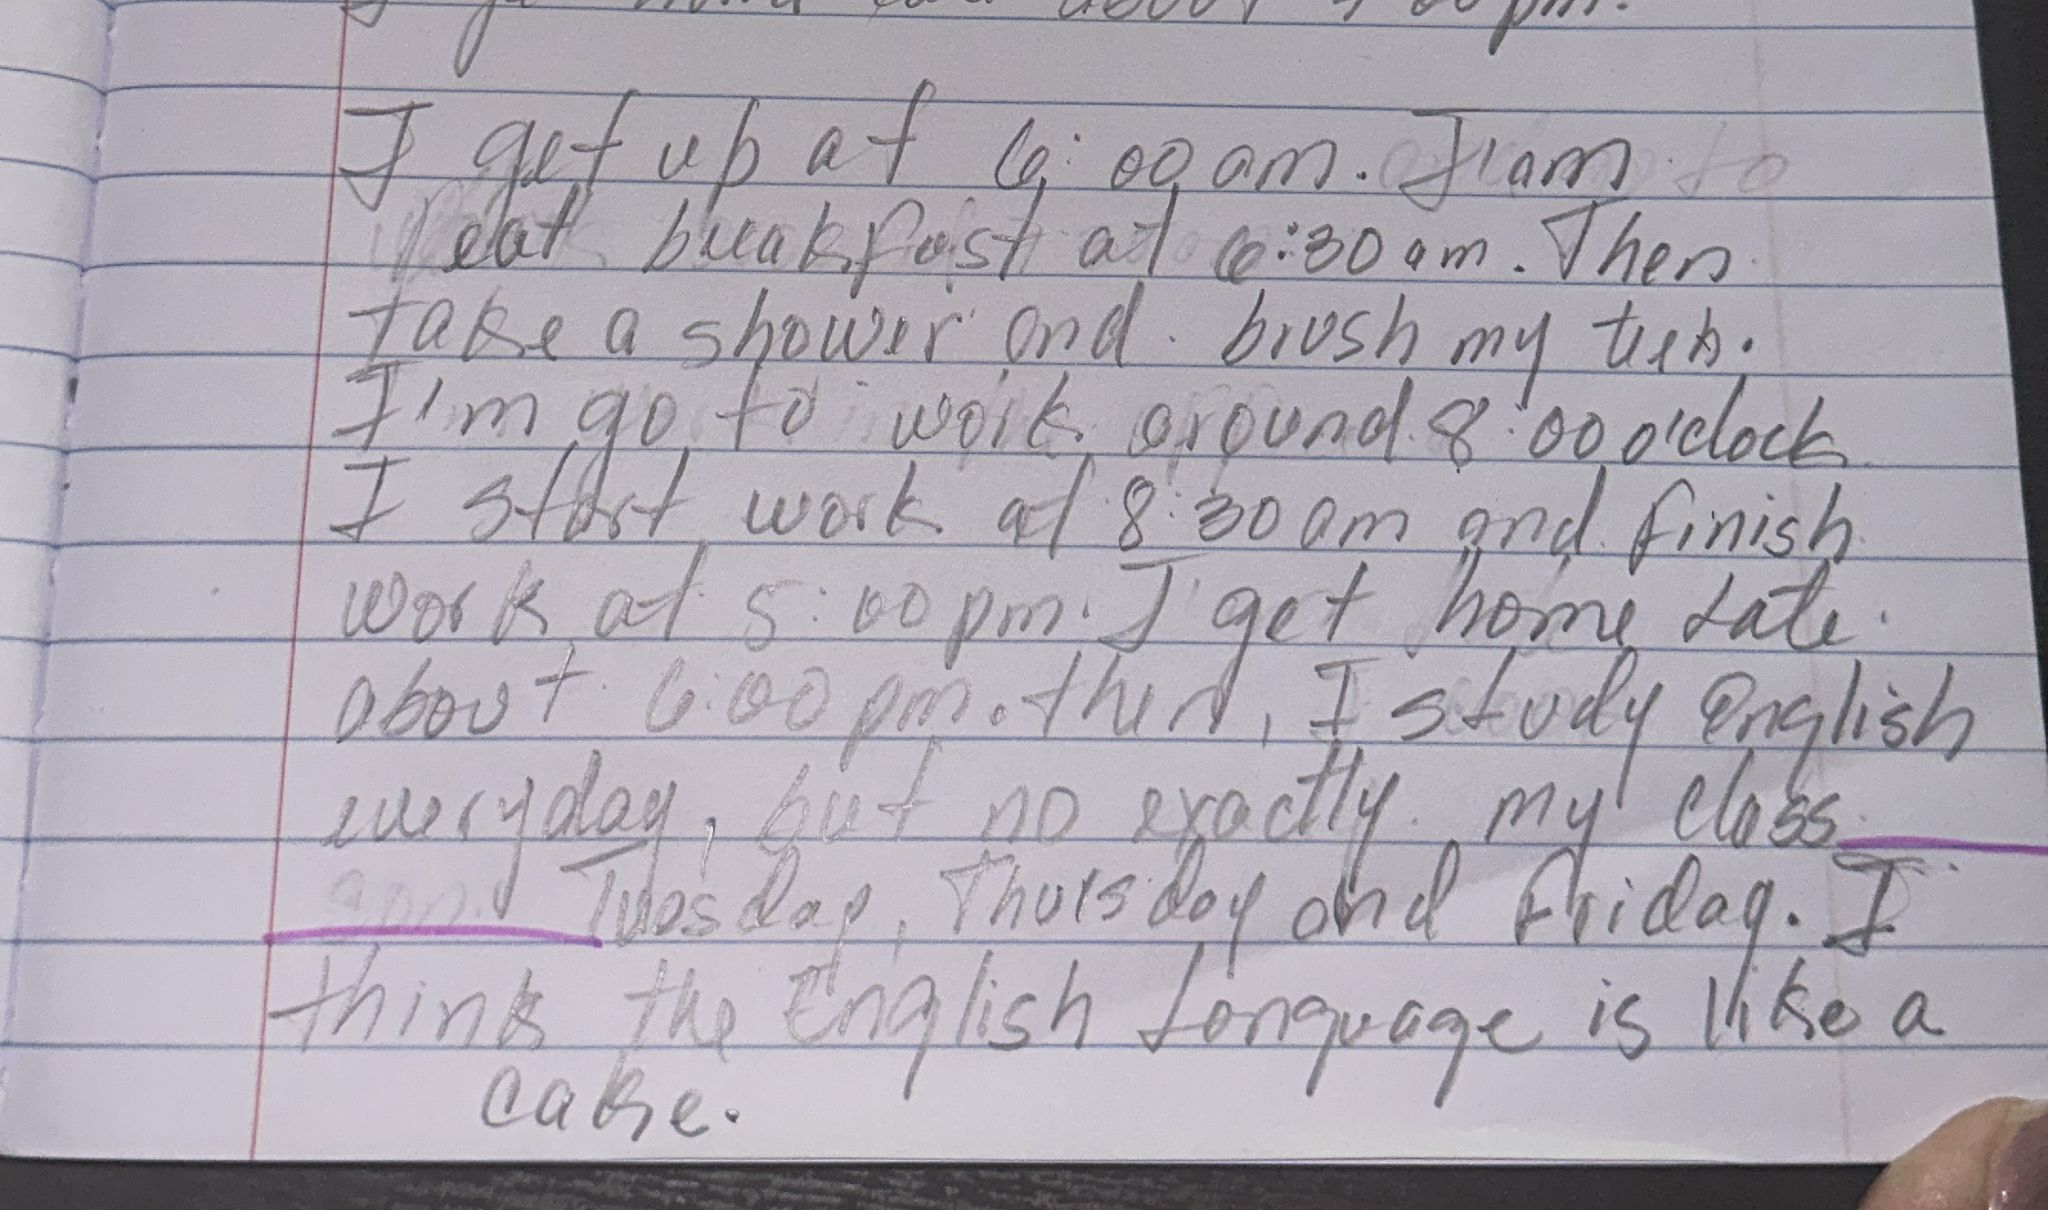 about 4:00 pm.
I get up at 6:00 am. I'am
eat breakfast at 6:30 am. Then
take a shower and brush my
I'm go to work around 8:00 o'clock
I start work at 8:30 am and finish
work at 5:00 pm. I get home Late
about 6:00 pm. then, I study English
everyday, but no exactly my class
Tuesday, Thursday and Friday. I
think the English Language is like a
cake.